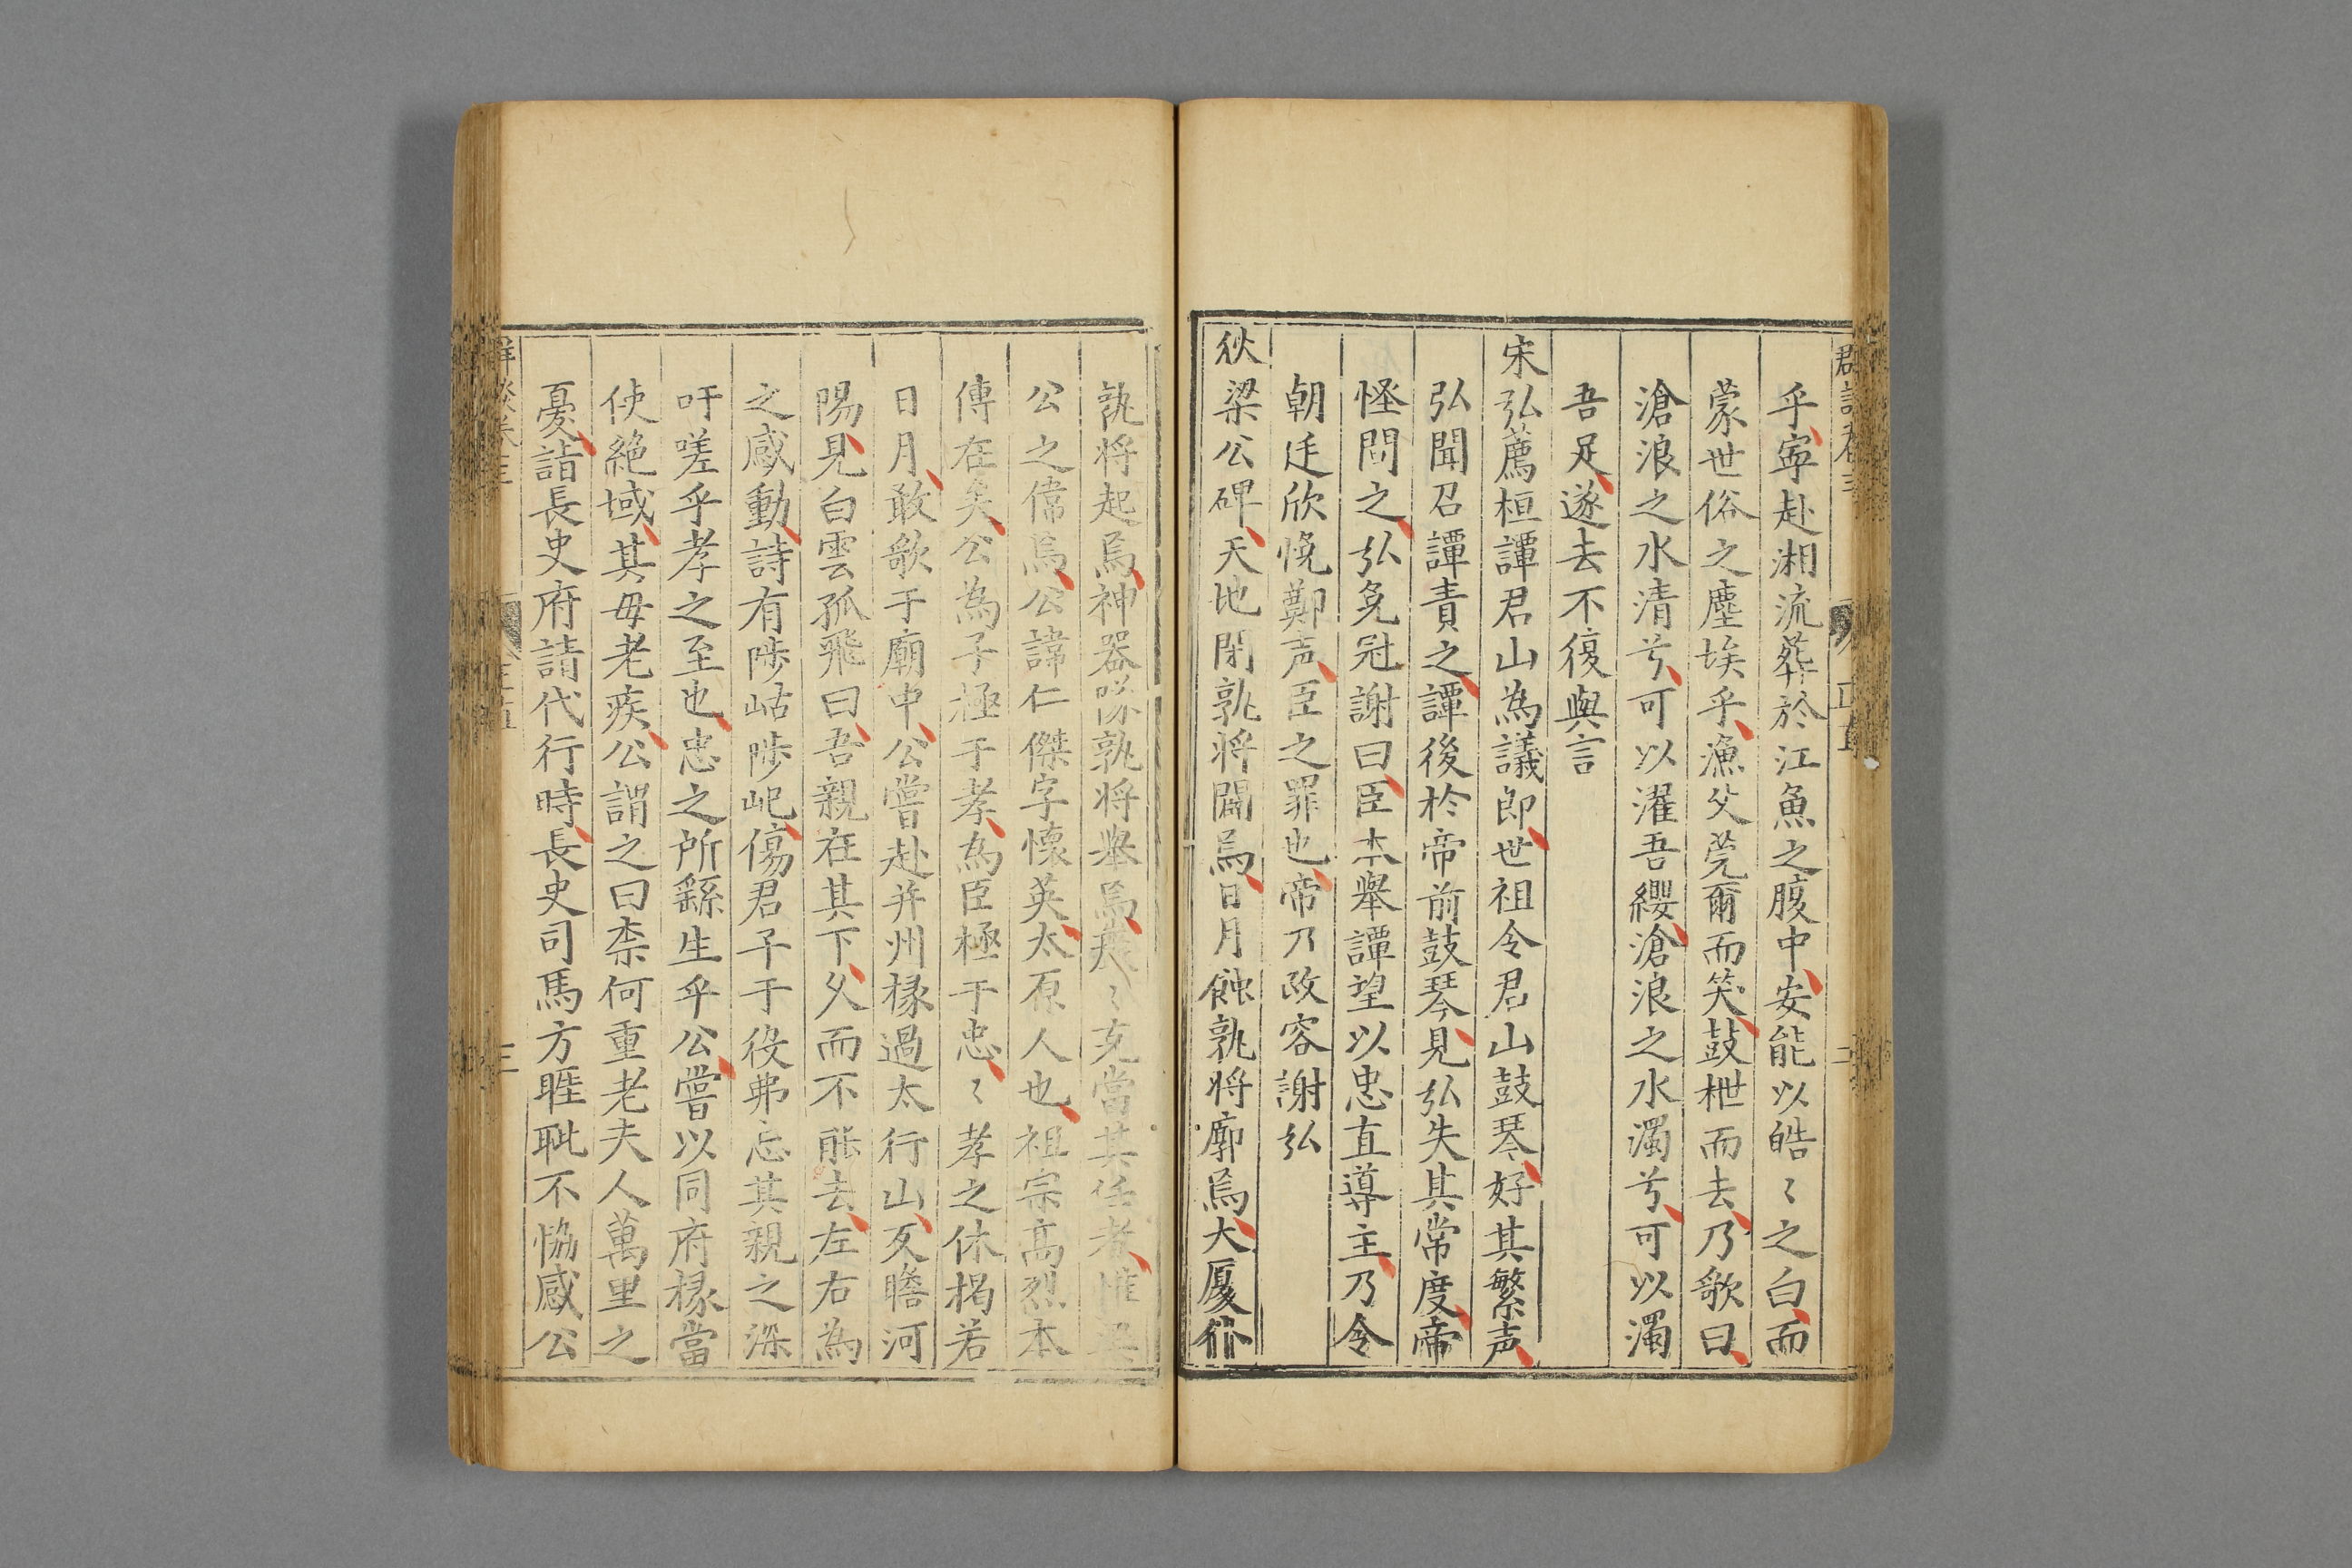 乎寧赴湘流葬於江魚之腹中安能以皓〻之白而
蒙世俗之塵埃乎漁父莞爾而笑鼓枻而去乃歌曰
滄浪之水清兮可以濯吾纓滄浪之水濁兮可以濁
吾足遂去不復與言
宋弘薦桓譚君山為議郎世祖令君山鼓琴好其繁声
弘聞召譚責之譚後於帝前鼓琴見弘失其常度帝
怪問之弘免冠謝曰臣本舉譚望以忠直導主乃令
朝廷欣悅鄭声臣之罪也帝乃改容謝弘
狄梁公碑天地閉孰將闢焉日月蝕孰将廓焉大厦仆
孰将起焉神器墜孰将舉焉巖〻克當其任者惟梁
公之偉焉公諱仁傑字懐英太原人也祖宗高烈本
傳在矣公為子極于孝為臣極于忠〻孝之休揭若
日月敢歌于廟中公嘗赴并州掾過太行山反瞻河
陽見白雲孤飛曰吾親在其下久而不能去左右為
之感動詩有陟岵陟屺傷君子于役弗忘其親之深
吁嗟乎孝之至也忠之所繇生乎公嘗以同府掾當
使絶域其母老疾公謂之曰柰何重老夫人萬里之
憂詣長史府請代行時長史司馬方睢耻不恊感公